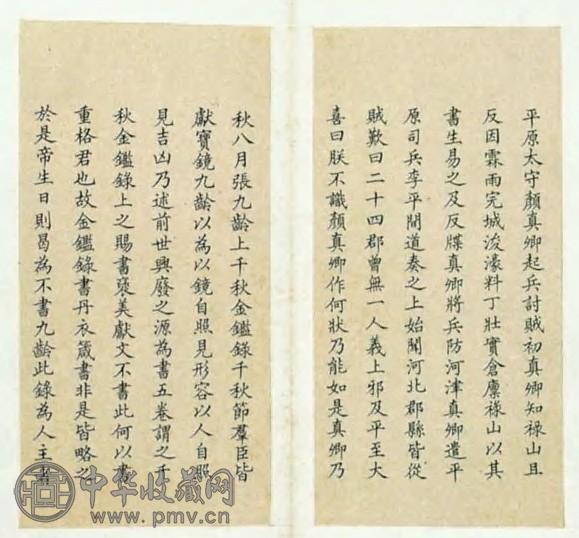 平原太守顏真卿起兵討賊初真卿知祿山且
反因霖雨完城浚濠料丁壯實倉廩祿山以其
書生易之及反牒真卿將兵防河津真卿遣平
原司兵李平間道奏之上始聞河北郡縣皆從
賊歎曰二十四郡曾無一人義士邪及平至大
喜曰朕不識顏真卿作何狀乃能如是真卿乃
秋八月張九齡上千秋金鑑錄千秋節羣臣皆
獻寶鏡九齡以為以鏡自照見形容以人自照
見吉凶乃述前世興廢之源為書五卷謂之千
秋金鑑錄上之賜書褒美獻文不書此何以書
重格君也故金鑑錄書丹衣箴書非是皆略之
於是帝生日則曷為不書九齡此錄為人主書
中华收藏网
www.pmv.cn